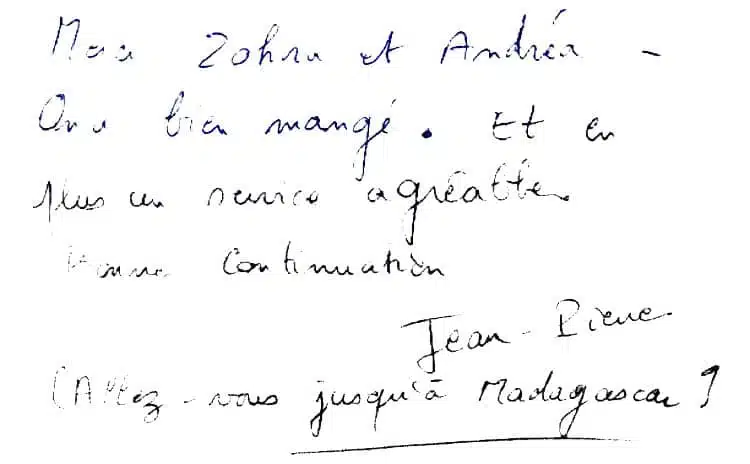 Merci Zohra et Andréa -
On a bien mangé. Et en
plus un service agréable.
Bonne Continuation
Jean-Pierre
(Allez-vous jusqu'à Madagascar ?